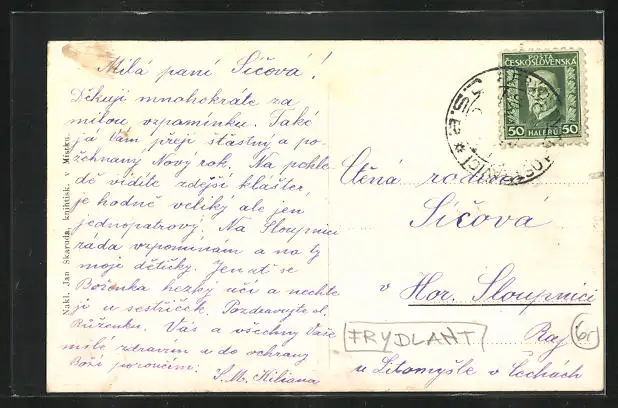 Milá paní Síčová!
Děkuji mnohokráte za
milou vzpomínku. Také
já Vám přeji šťastný a po-
žehnaný Nový rok. Na pohle-
dě vidíte zdejší klášter,
je hodně veliký ale jen
jednopatrový. Na Sloupnici
ráda vzpomínám a na ty
moje dětičky. Jen ať se
Boženka hezky učí a nechte
ji u sestřiček. Pozdravujte sl.
Růženku. Vás a všechny Vaše
milé zdravím a do ochrany
Boží poroučím:
S. M. Kiliana
Nakl. Jan Škaruda, knihtisk. v Místku.
POŠTA
ČESKOSLOVENSKÁ
50 HALÉŘŮ 50
Ctěná rodina
Síčová
v Hor. Sloupnici
FRYDLANT
u Litomyšle v Čechách